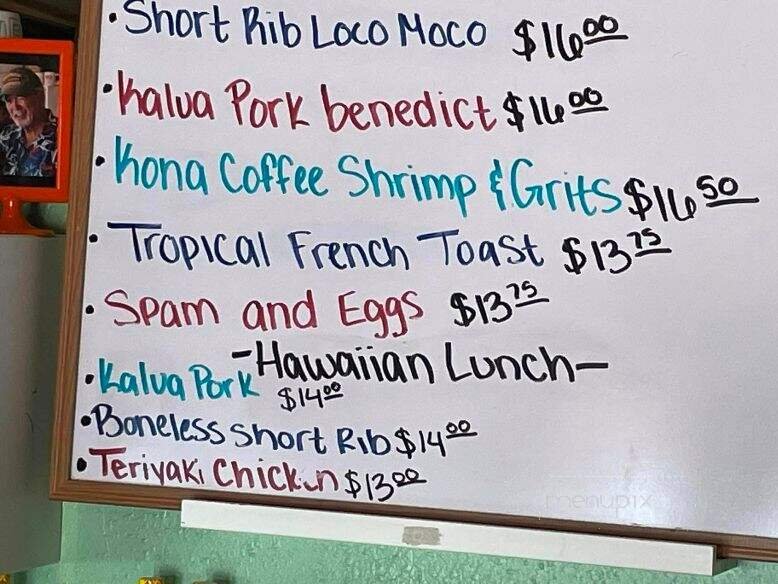 • Short Rib Loco Moco $16.00
• Kalua Pork benedict $16.00
• Kona Coffee Shrimp & Grits $16.50
• Tropical French Toast $13.75
• Spam and Eggs $13.75
-Hawaiian Lunch-
• Kalua Pork $14.00
• Boneless Short Rib $14.00
• Teriyaki Chicken $13.00
menupix